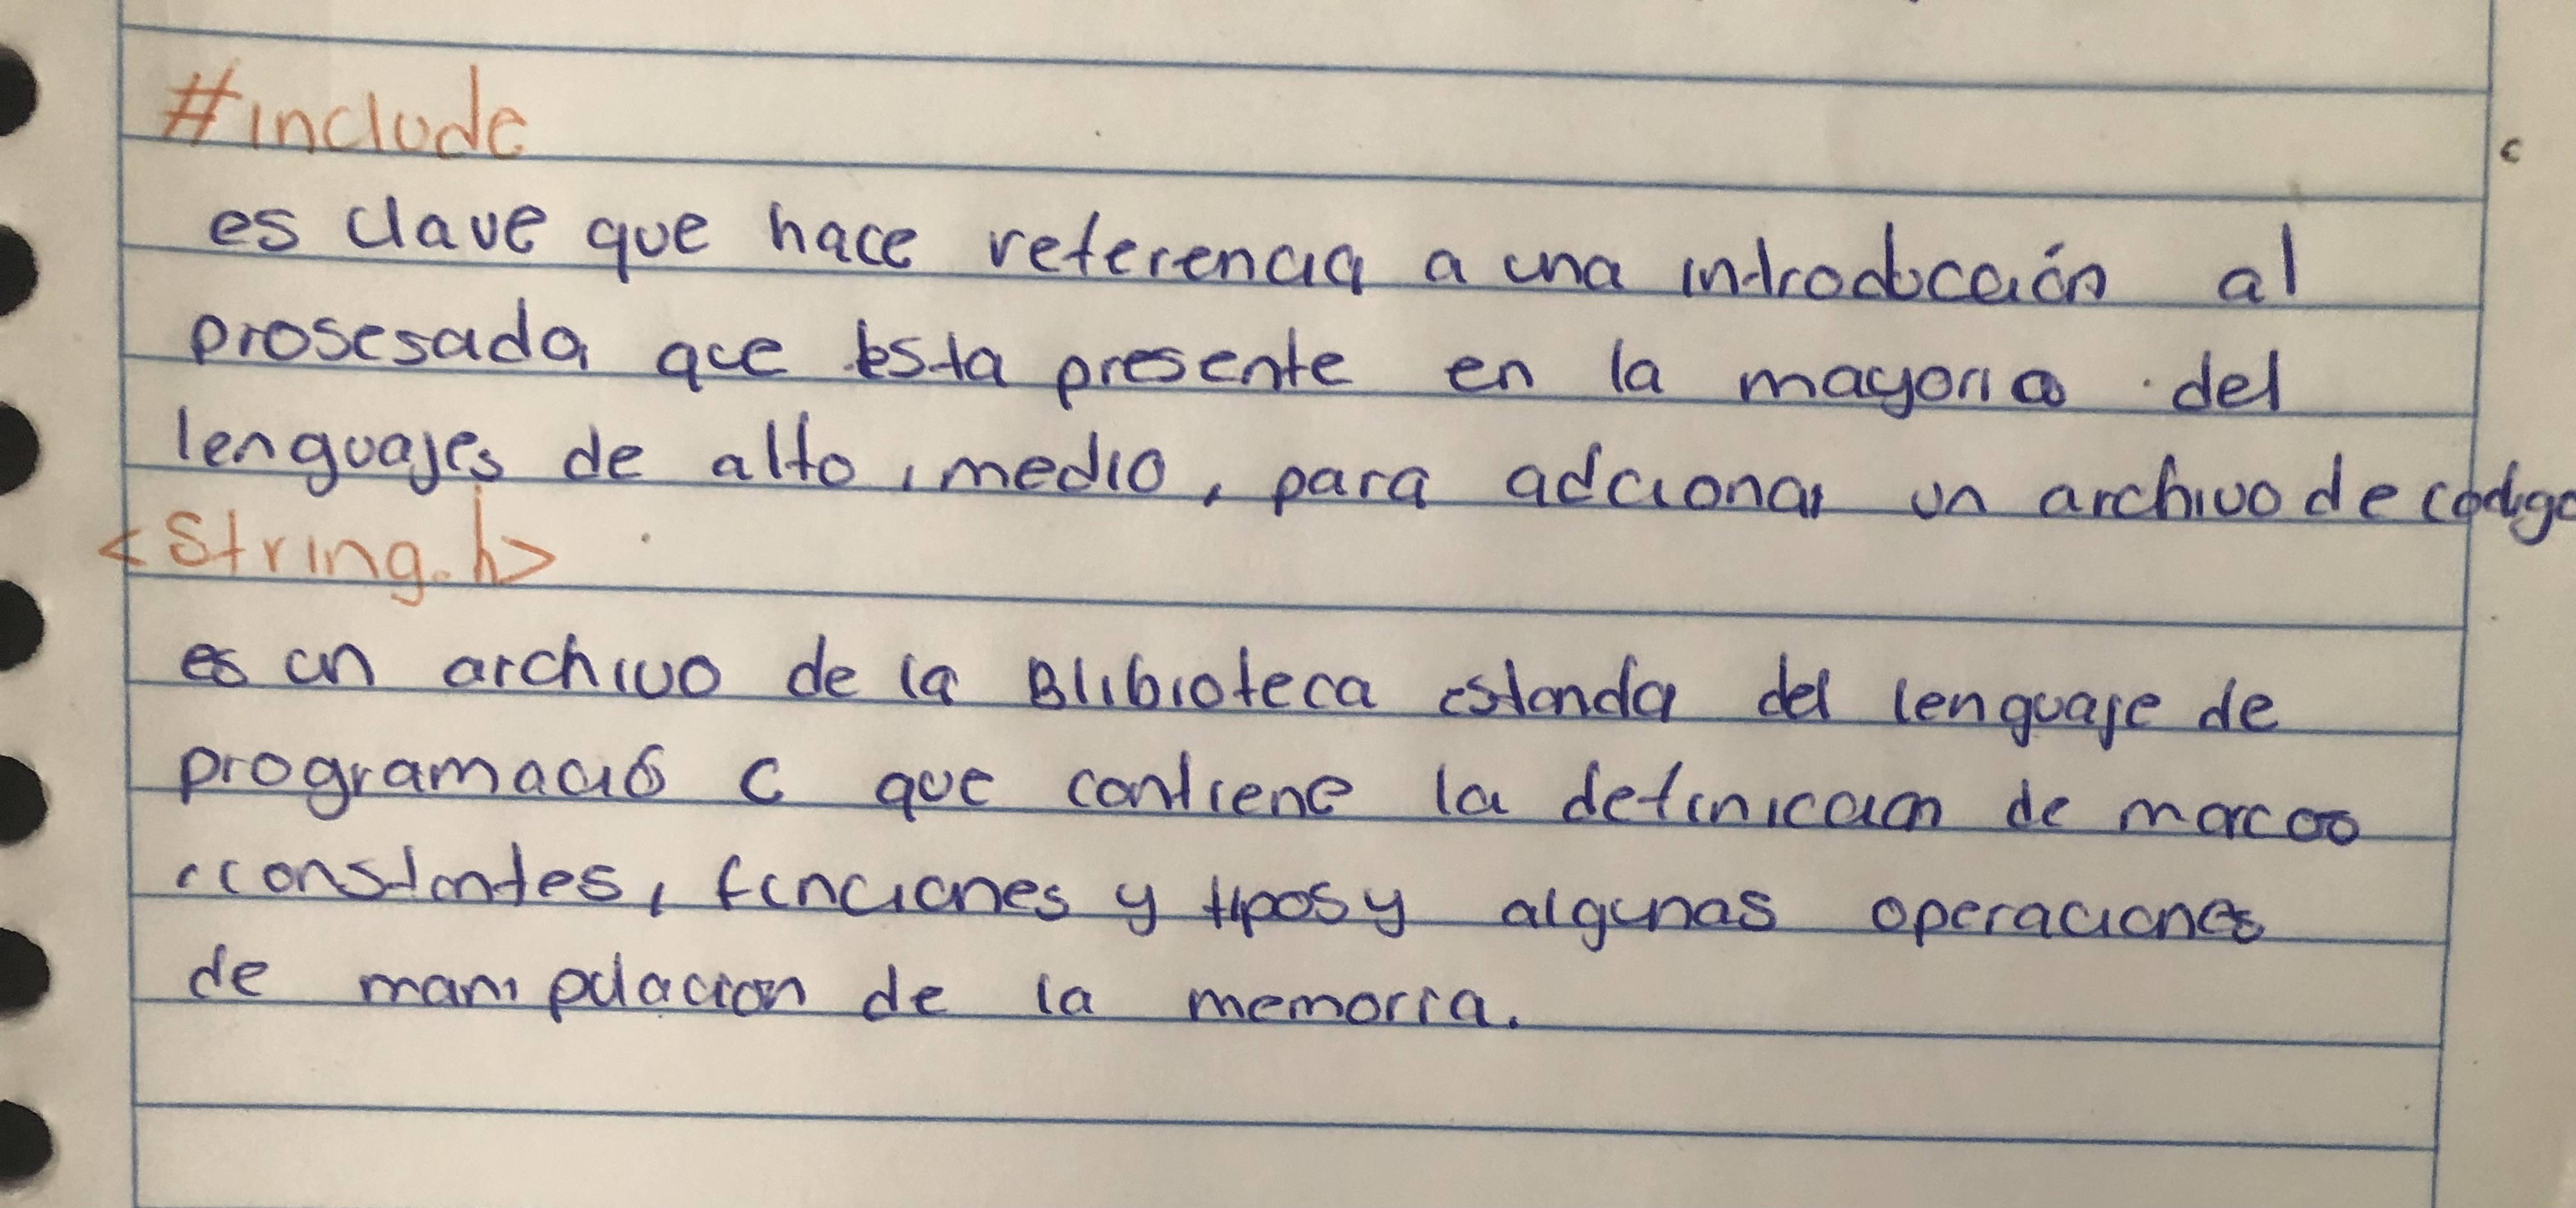 #include
es clave que hace referencia a una introduccaión al
prosesada que Esta presente en la mayoria del
lenguajes de alto, medio, para adcionar un archivo de codigo
<string.h>
es un archivo de la Blibioteca estanda del lenguaje de
programació C que contiene la definicaion de marcos
constantes, funciones y tipos y algunas operaciones
de manipulacion de la memoria.